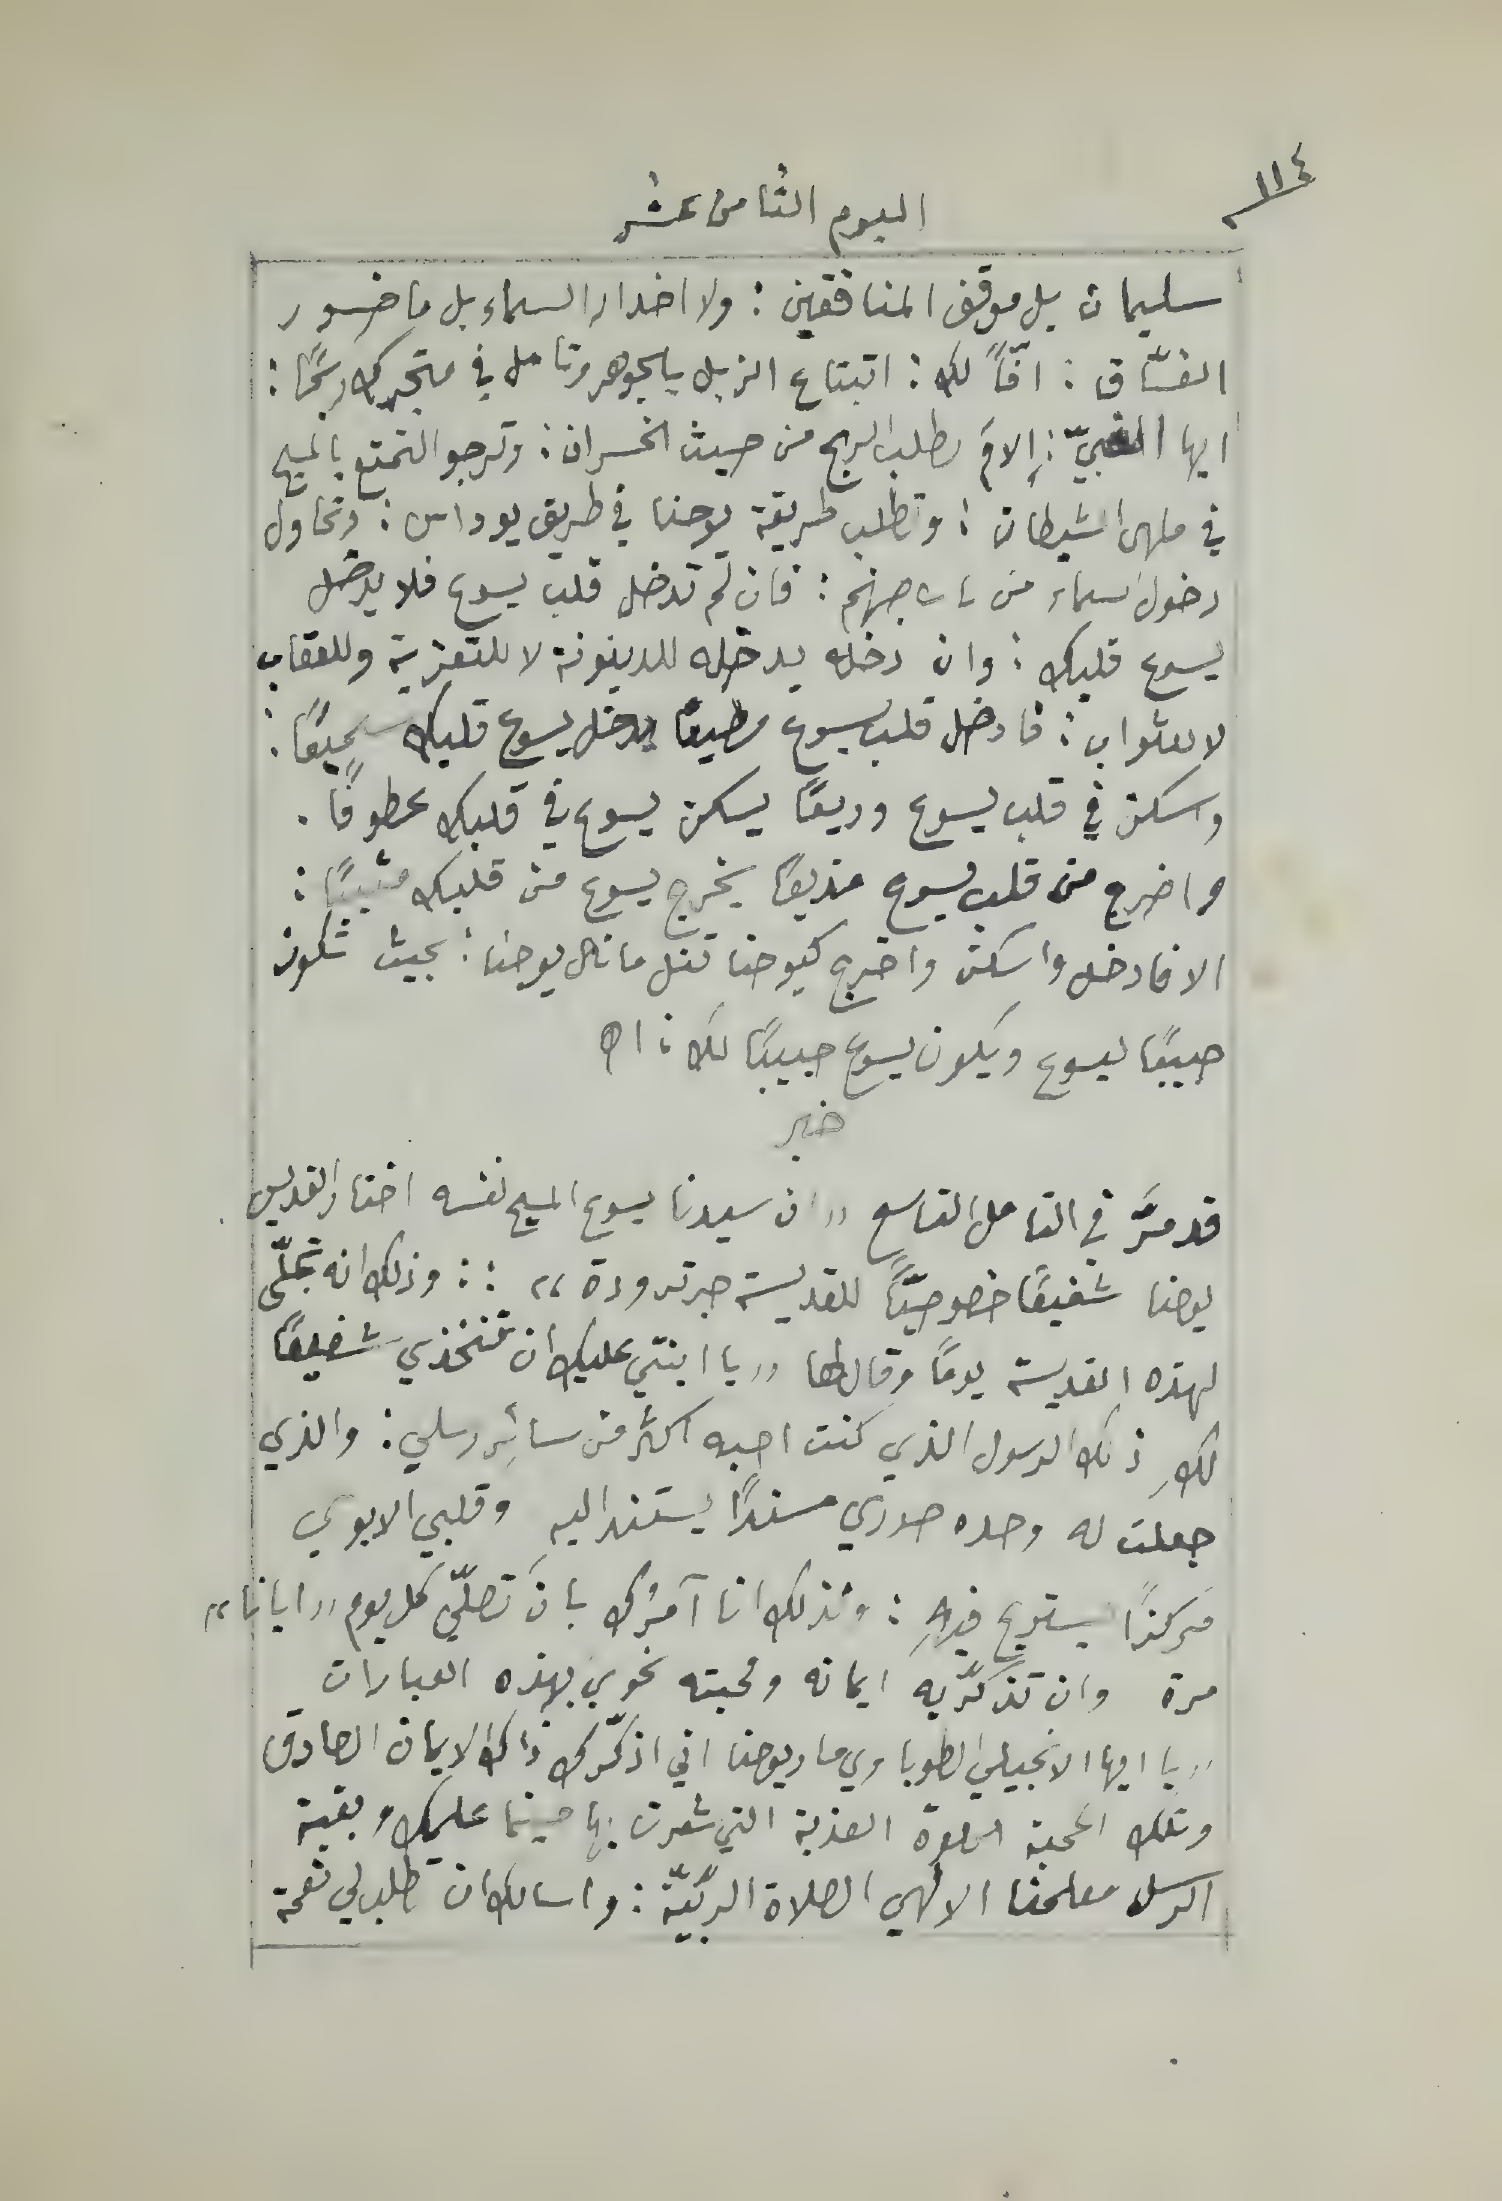 ١١٤
اليوم الثامن عشر
سليمان بل موقف المنافقين : ولا اخدار السماء بل ماخور
الفسّاق : افّاً لك : اتبتاع الزبل بالجوهر وتامل في متجرك ربحًا :
ايها الغبيّ : إلامَ تطلب الربح من حيث الخسران : وترجو التمتع بالمسيح
في ملهى الشيطان : وتطلب طريقة يوحنا في طريق يوداس : وتحاول
دخول السماء من باب جهنم : فان لم تدخل قلب يسوع فلا يدخل
يسوع قلبك : وان دخله يدخله للدينونة لا للتعزية وللعقاب
لا للثواب : فادخل قلب يسوع مطيعًا يدخل يسوع قلبك سميعًا :
واسكن في قلب يسوع وديعًا يسكن يسوع في قلبك عطوفًا .
واخرج من قلب يسوع مذيعًا يخرج يسوع من قلبك مثيبًا :
الا فادخل واسكن واخرج كيوحنا تنل ما نال يوحنا : بحيث تكون
حبيبًا ليسوع ويكون يسوع حبيبًا لك : اه
خبر
قد مرَّ في التامل التاسع „ ان سيدنا يسوع المسيح نفسه اختار القديس
يوحنا شفيعًا خصوصيًّا للقديسة جرترودة “ : : وذلك انه تجلّى
لهذه القديسة يومًا وقال لها „ يا ابنتي عليك ان تتخذي شفيعًا
لكِ ذلك الرسول الذي كنت احبه اكثر من سائر رسلي : والذي
جعلت له وحده صدري مسندًا يستند اليه وقلبي الابوي
مَركزًا يستريح فيهِ : ولذلك انا آمرُك بان تصلّي كل يوم „ ابانا “
مرة وان تذكّريه ايمانه ومحبته نحوي بهذه العبارات
„ يا ايها الانجيلي الطوباوي مار يوحنا اني اذكّرك ذاك الايمان الصادق
وتلك المحبة الحلوة العذبة التي شعرت بها حينما علمك وبقية
الرسل معلمنا الالهي الصلاة الربّيّة : واسالك ان تطلب لي نعمة